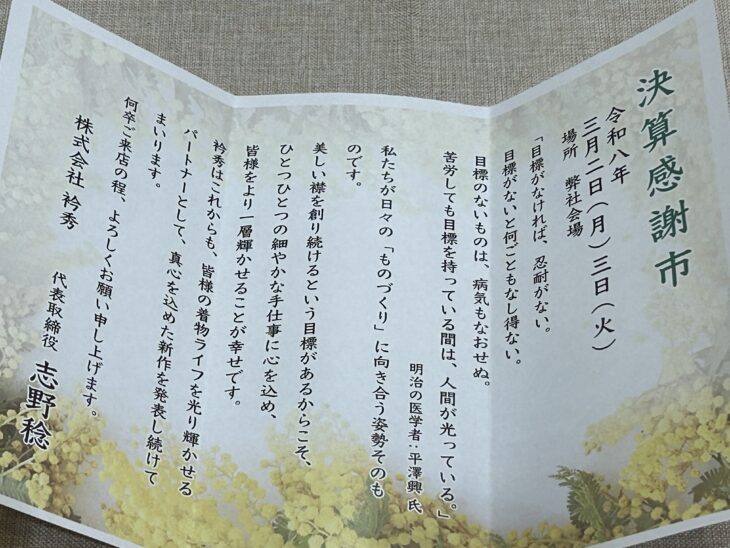 決算感謝市
令和八年
三月二日(月)三日(火)
場所 弊社会場
「目標がなければ、忍耐がない。
目標がないと何ごともなし得ない。
目標のないものは、病気もなおせぬ。
苦労しても目標を持っている間は、人間が光っている。」
明治の医学者:平澤興 氏
私たちが日々の「ものづくり」に向き合う姿勢そのも
のです。
美しい襟を創り続けるという目標があるからこそ、
ひとつひとつの細やかな手仕事に心を込め、
皆様をより一層輝かせることが幸せです。
衿秀はこれからも、皆様の着物ライフを光り輝かせる
パートナーとして、真心を込めた新作を発表し続けて
まいります。
何卒ご来店の程、よろしくお願い申し上げます。
株式会社 衿秀 代表取締役 志野稔